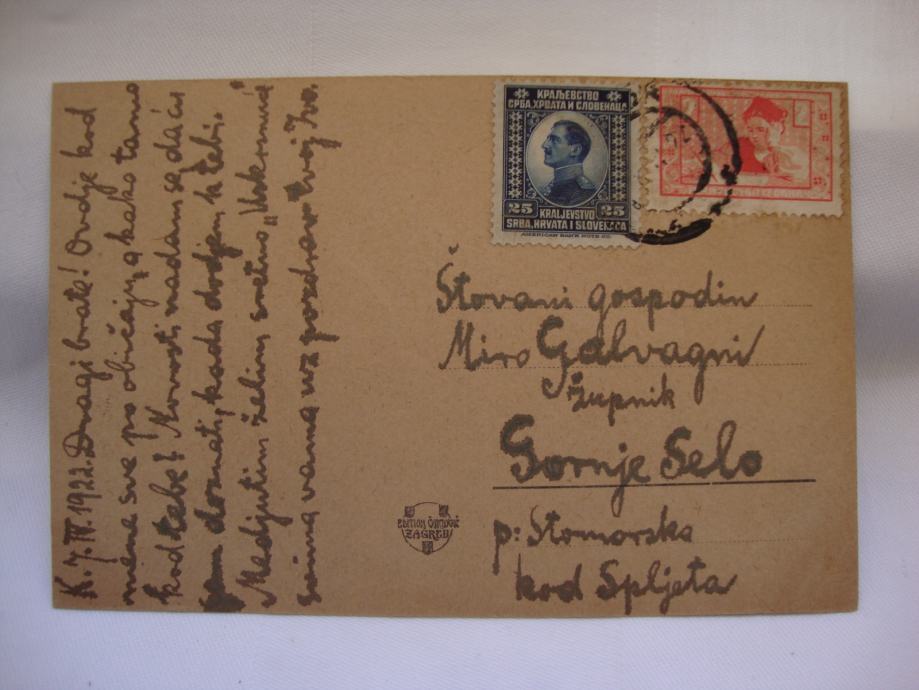 K. 7. IV. 1922. Dragi brate! Ovdje kod
mene sve po običaju, a kako tamo
kod tebe? Novosti nadam se da ću
doznati, kada dodjem k tebi.
Medjutim želim sretno „Uskrsnuće“
svima vama uz pozdrav tvoj Ivo.
КРАЉЕВСТВО
СРБА, ХРВАТА И СЛОВЕНАЦА
25 25
KRALJEVSTVO
SRBA, HRVATA I SLOVENACA
AMERICAN BANK NOTE CO.
Štovani gospodin
Miro Galvagni
župnik
Gornje Selo
p: Stomorska
kod Spljeta
EDITION ČAKLOVIĆ
ZAGREB